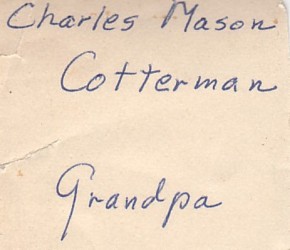 Charles Mason
Cotterman
Grandpa